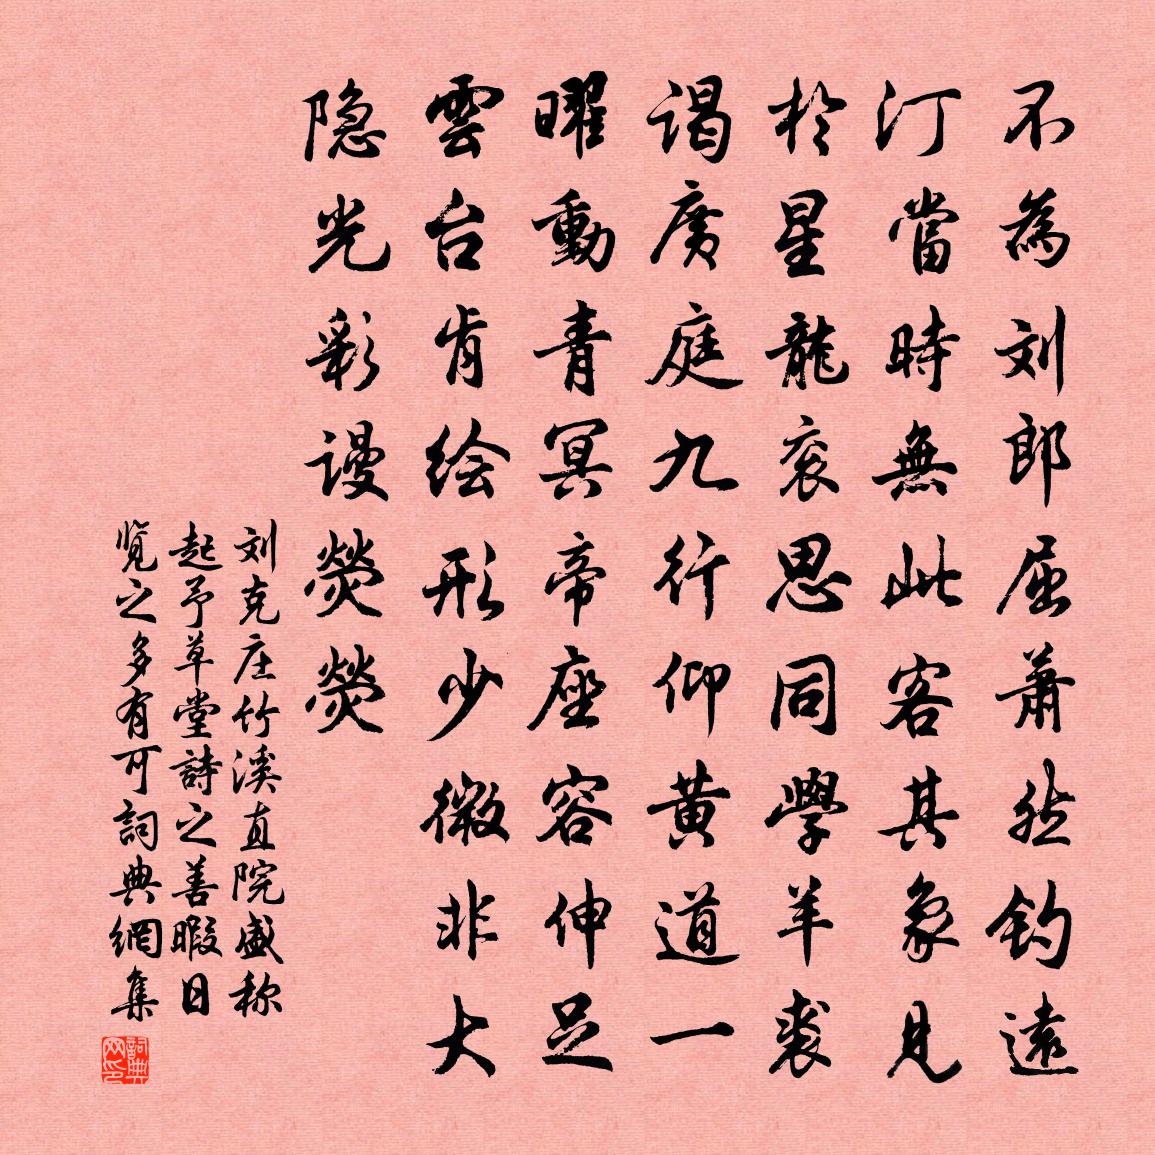 不為刘郎屈蕭然钓遠
汀當時無此客其象見
於星龍衮思同學羊裘
谒廣庭九行仰黄道一
曜動青冥帝座容伸足
雲台肯绘形少微非大
隐光彩谩熒熒
刘克庄竹溪直院盛称
起予草堂詩之善暇日
览之多有可詞典網集
詞典网印